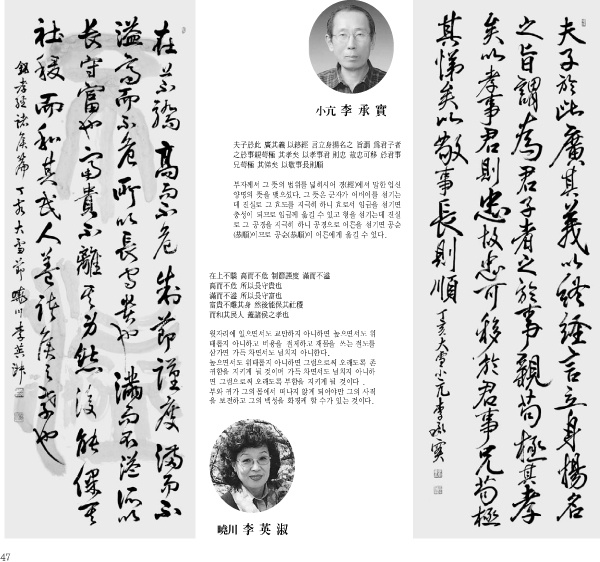 在上不驕高而不危制節謹度滿而不
溢高而不危所以長守貴也滿而不溢所以
長守富也富貴不離其身然後能保其
社稷而和其民人蓋諸侯之孝也
錄孝經諸侯篇 丁亥大雪節 曉川李英淑
小亢 李承實
夫子於此 廣其義 以終經 言立身揚名之 旨謂 爲君子者
之於事親苟極 其孝矣 以孝事君 則忠 故忠可移 於君事
兄苟極 其悌矣 以敬事長則順
부자께서 그 뜻의 범위를 넓히시어 경(經)에서 말한 입신
양명의 뜻을 맺으셨다. 그 뜻은 군자가 어버이를 섬기는
데 진실로 그 효도를 지극히 하니 효로서 임금을 섬기면
충성이 되므로 임금께 옮길 수 있고 형을 섬기는데 진실
로 그 공경을 지극히 하니 공경으로 어른을 섬기면 공순
(恭順)이므로 공순(恭順)이 어른에게 옮길 수 있다.
在上不驕 高而不危 制節謹度 滿而不溢
高而不危 所以長守貴也
滿而不溢 所以長守富也
富貴不離其身 然後能保其社稷
而和其民人 蓋諸侯之孝也
윗자리에 있으면서도 교만하지 아니하면 높으면서도 위
태롭지 아니하고 비용을 절제하고 재물을 쓰는 절도를
삼가면 가득 차면서도 넘치지 아니한다.
높으면서도 위태롭지 아니하면 그럼으로써 오래도록 존
귀함을 지키게 될 것이며 가득 차면서도 넘치지 아니하
면 그럼으로써 오래도록 부함을 지키게 될 것이다.
부와 귀가 그의 몸에서 떠나지 않게 되어야만 그의 사직
을 보전하고 그의 백성을 화평케 할 수가 있는 것이다.
曉川 李英淑
夫子於此廣其義以終經言立身揚名
之旨謂為君子者之於事親苟極其孝
矣以孝事君則忠故忠可移於君事兄苟極
其悌矣以敬事長則順 丁亥大雪小亢李承實
47